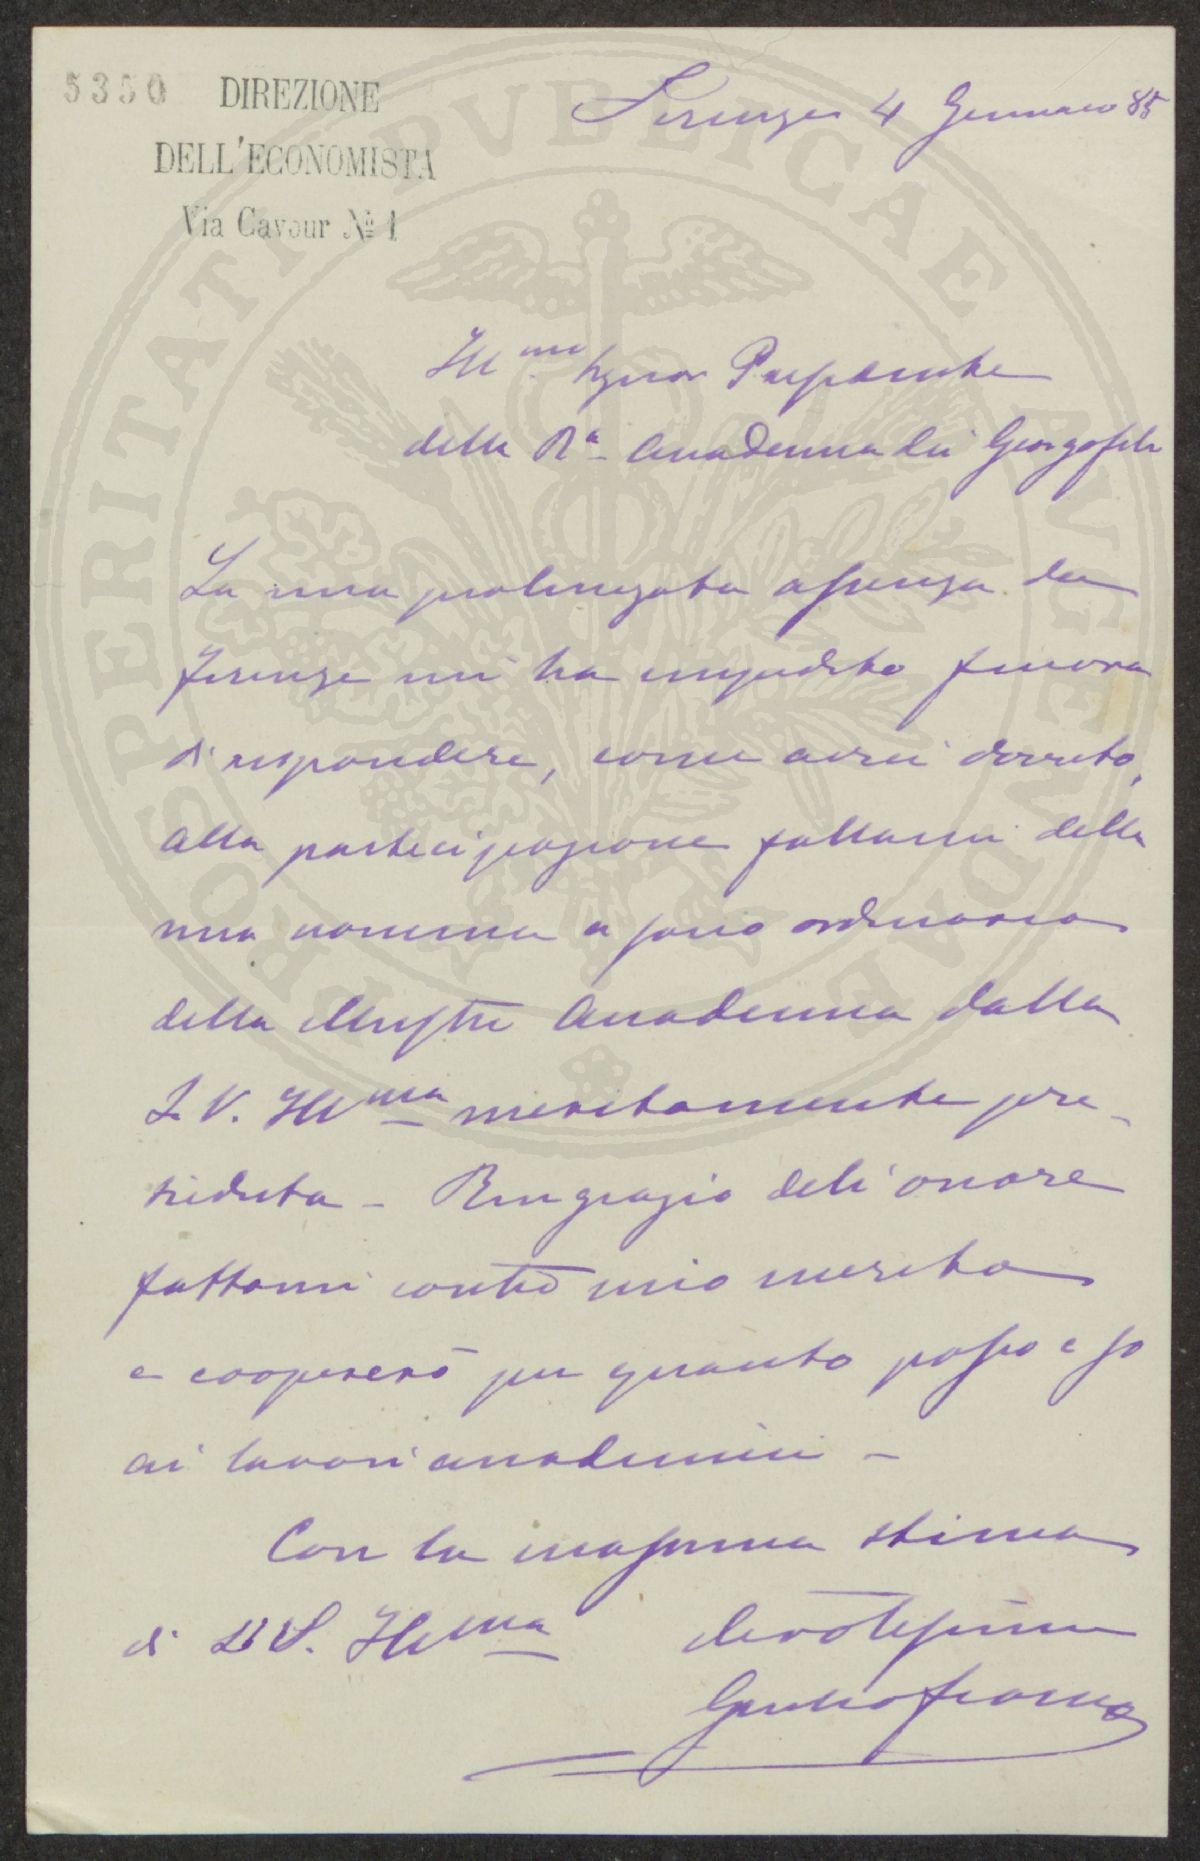 5350
DIREZIONE
DELL'ECONOMISTA
Via Cavour Nº 1
Firenze 4 Gennaio 85
Ill.mo Signor Presidente
della R.a Accademia dei Georgofili
La mia prolungata assenza da
Firenze mi ha impedito finora
di rispondere, come avrei dovuto,
alla partecipazione fattami della
mia nomina a socio ordinario
della illustre Accademia dalla
S. V. Ill.ma meritamente pre-
sieduta - Ringrazio dell'onore
fattomi contro mio merito
e coopererò per quanto posso e so
ai lavori accademici -
Con la massima stima
di V. S. Ill.ma devotissimo
Giulio Franco
PROSPERITATI PVBLICAE AVGENDAE